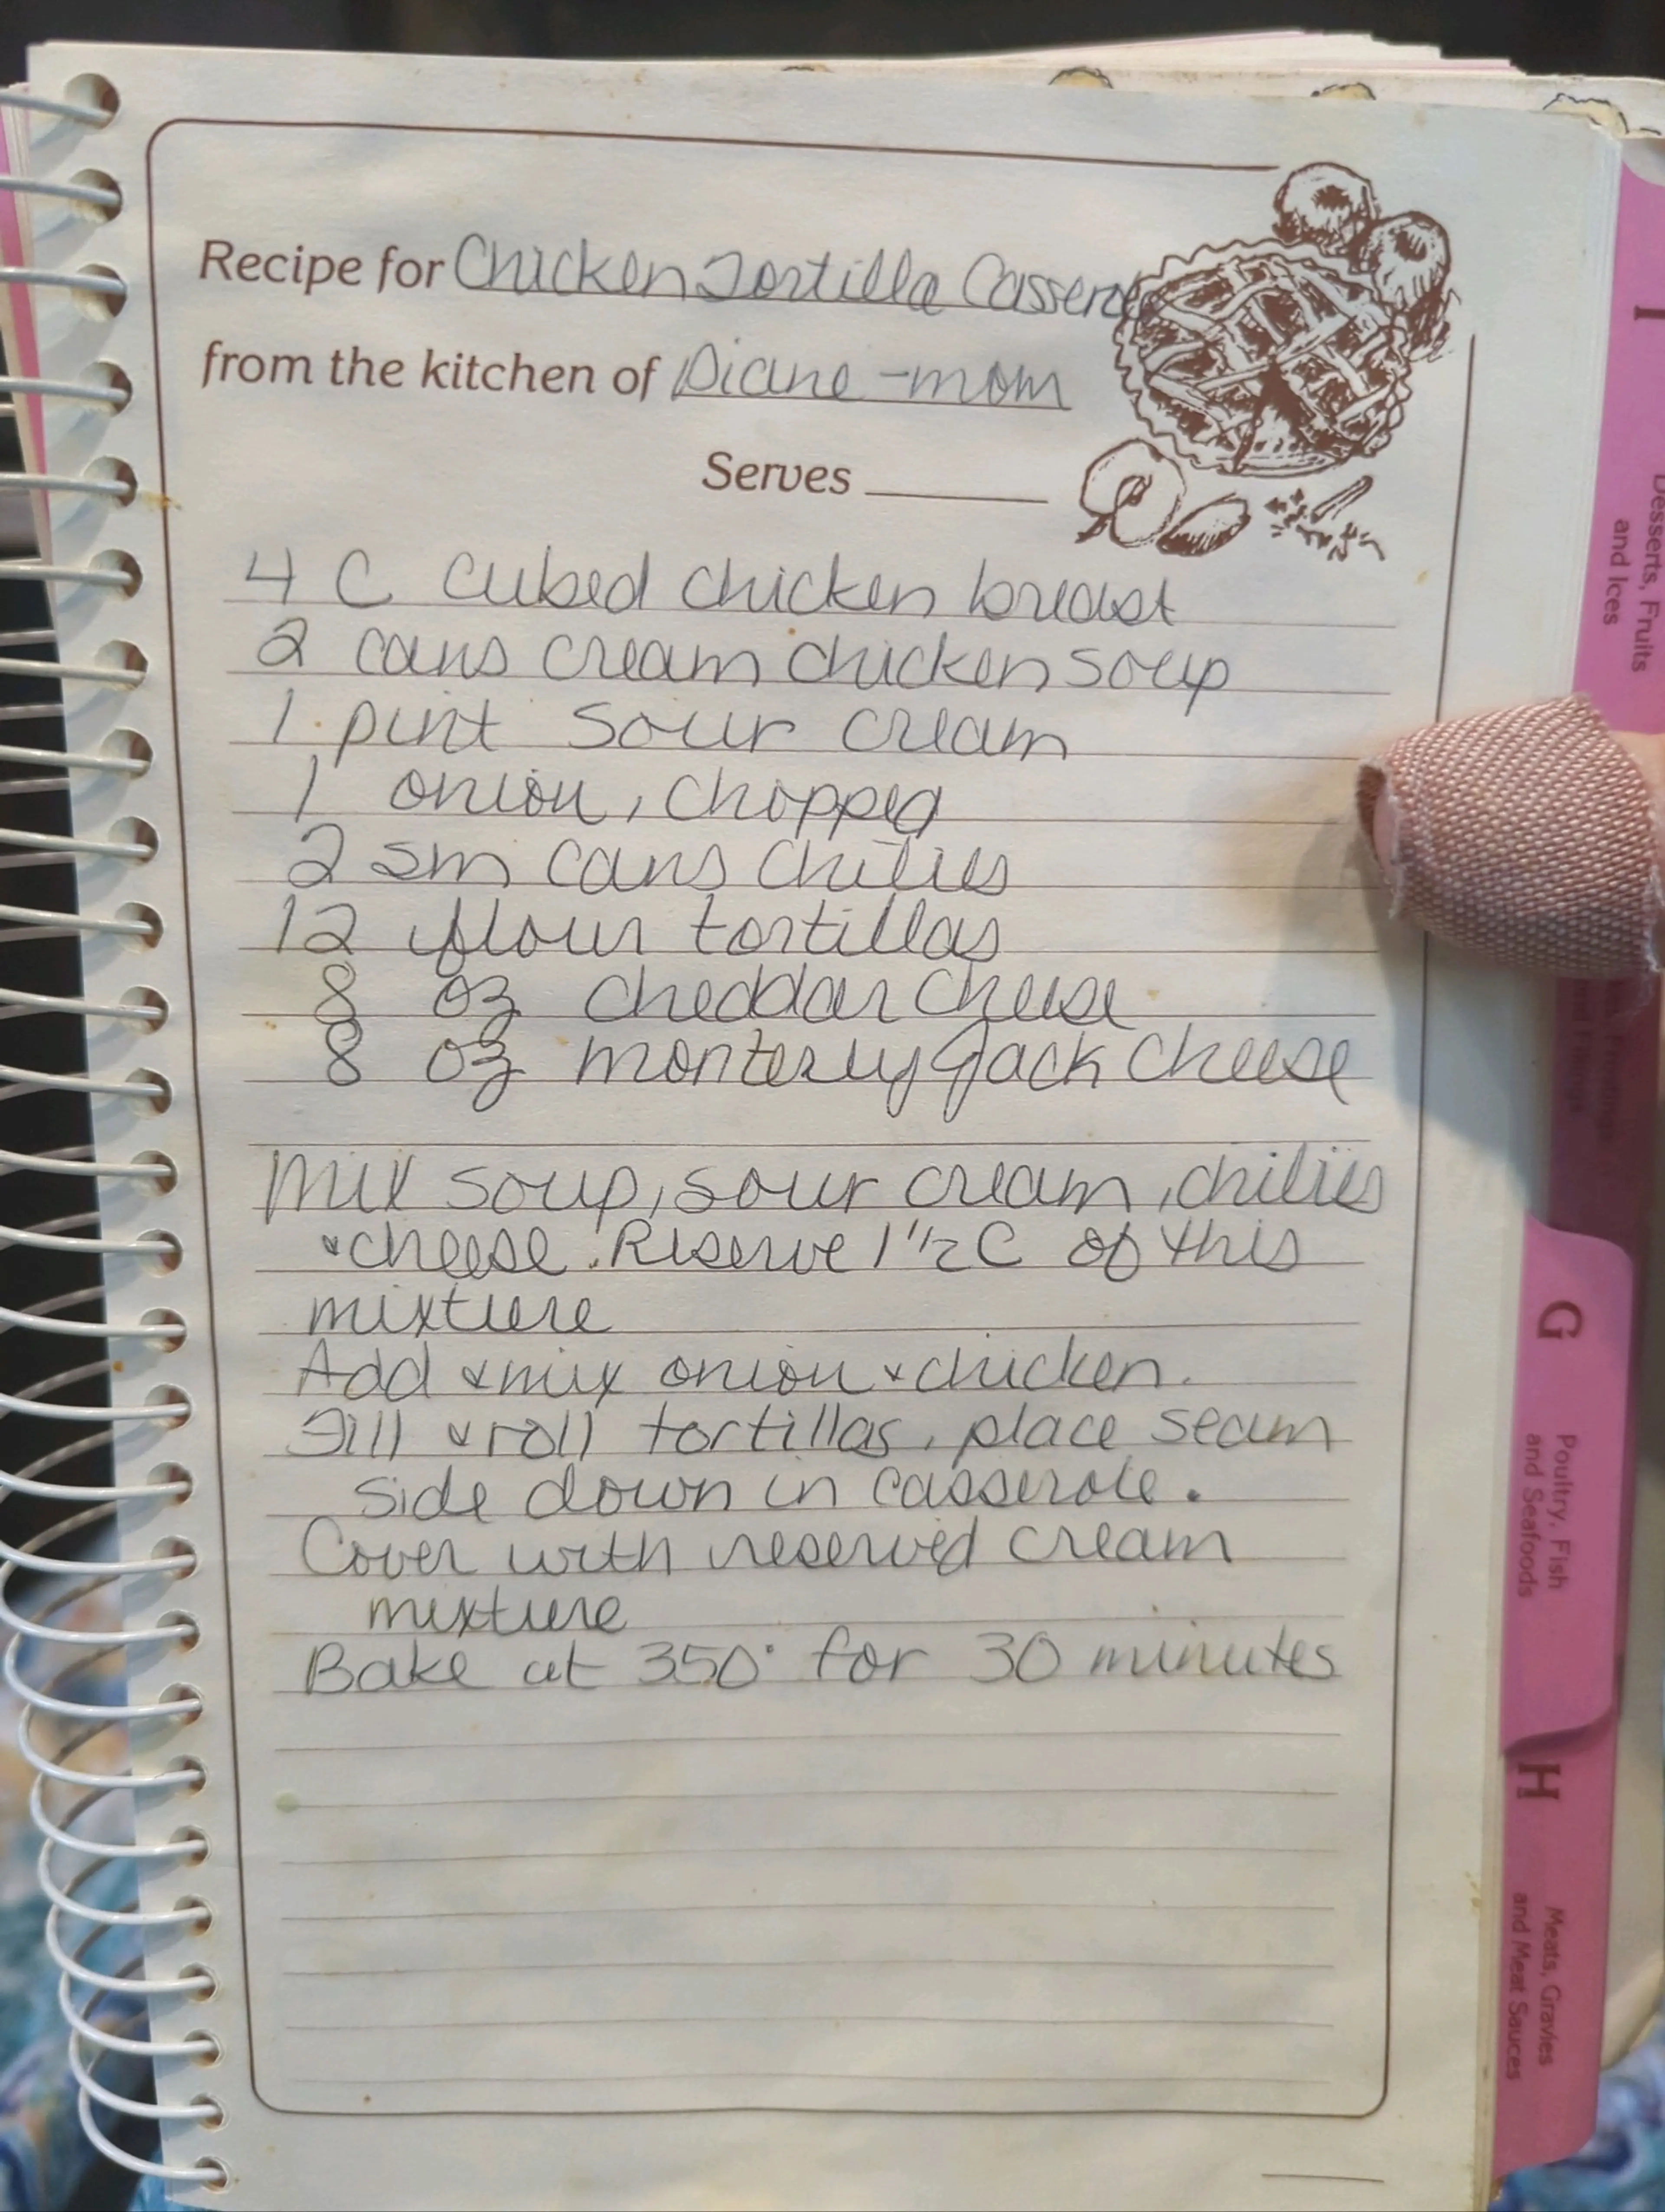 Recipe for Chicken Tortilla Casserole
from the kitchen of Diane - mom
Serves
4 C cubed chicken breast
2 cans cream chicken soup
1 pint sour cream
1 onion, chopped
2 sm cans chilies
12 flour tortillas
8 oz cheddar cheese
8 oz monterey Jack cheese
Mix soup, sour cream, chilies
& cheese. Reserve 1 1/2 C of this
mixture
Add & mix onion & chicken.
Fill & roll tortillas, place seam
side down in casserole.
Cover with reserved cream
mixture
Bake at 350° for 30 minutes
I
Desserts, Fruits
and Ices
G
Poultry, Fish
and Seafoods
H
Meats, Gravies
and Meat Sauces